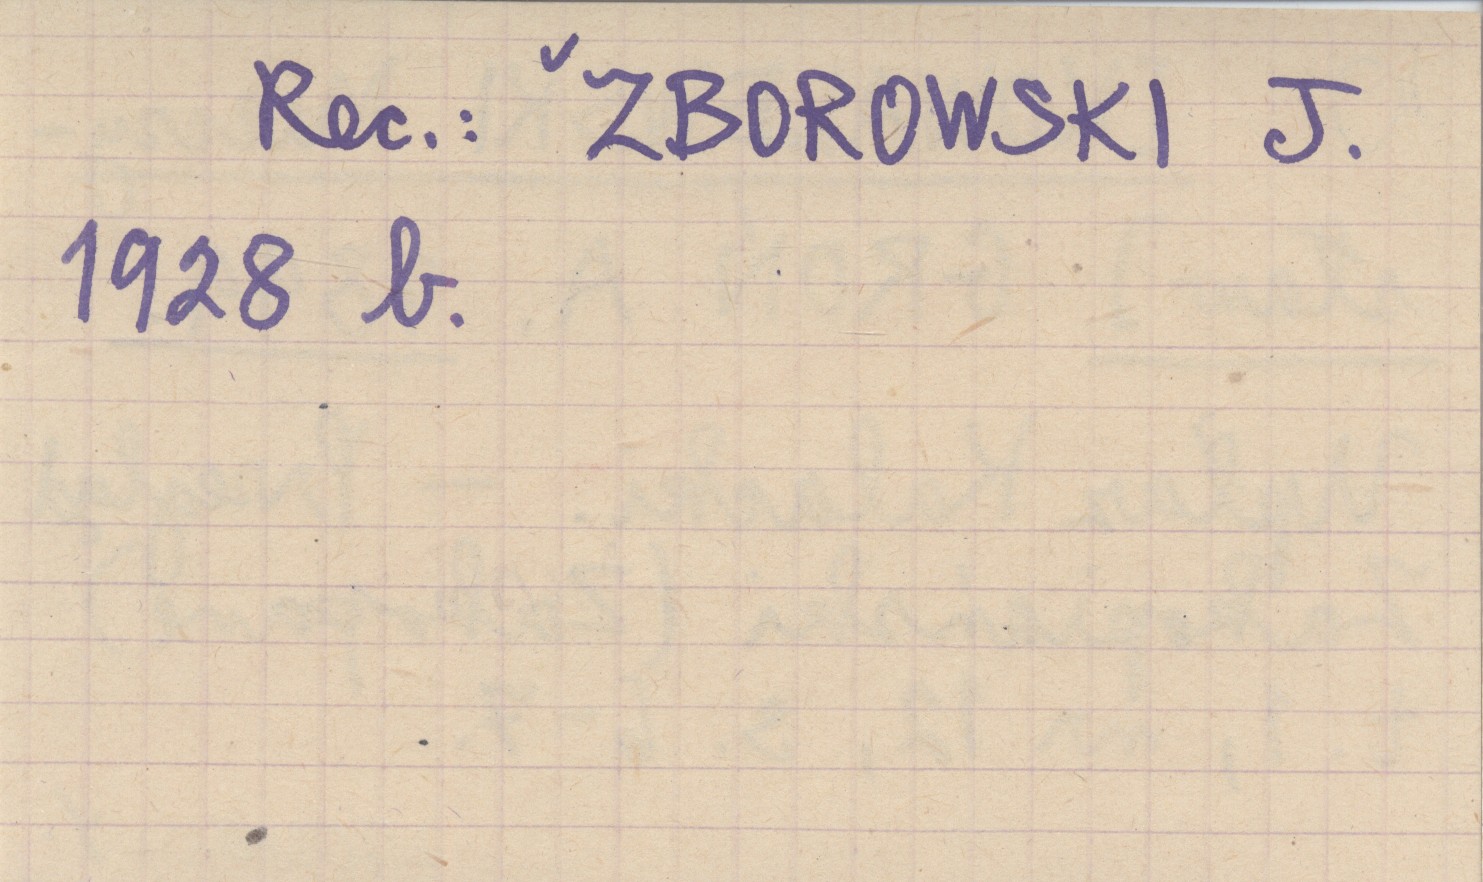 Rec.: ✓ZBOROWSKI J.
1928 b.